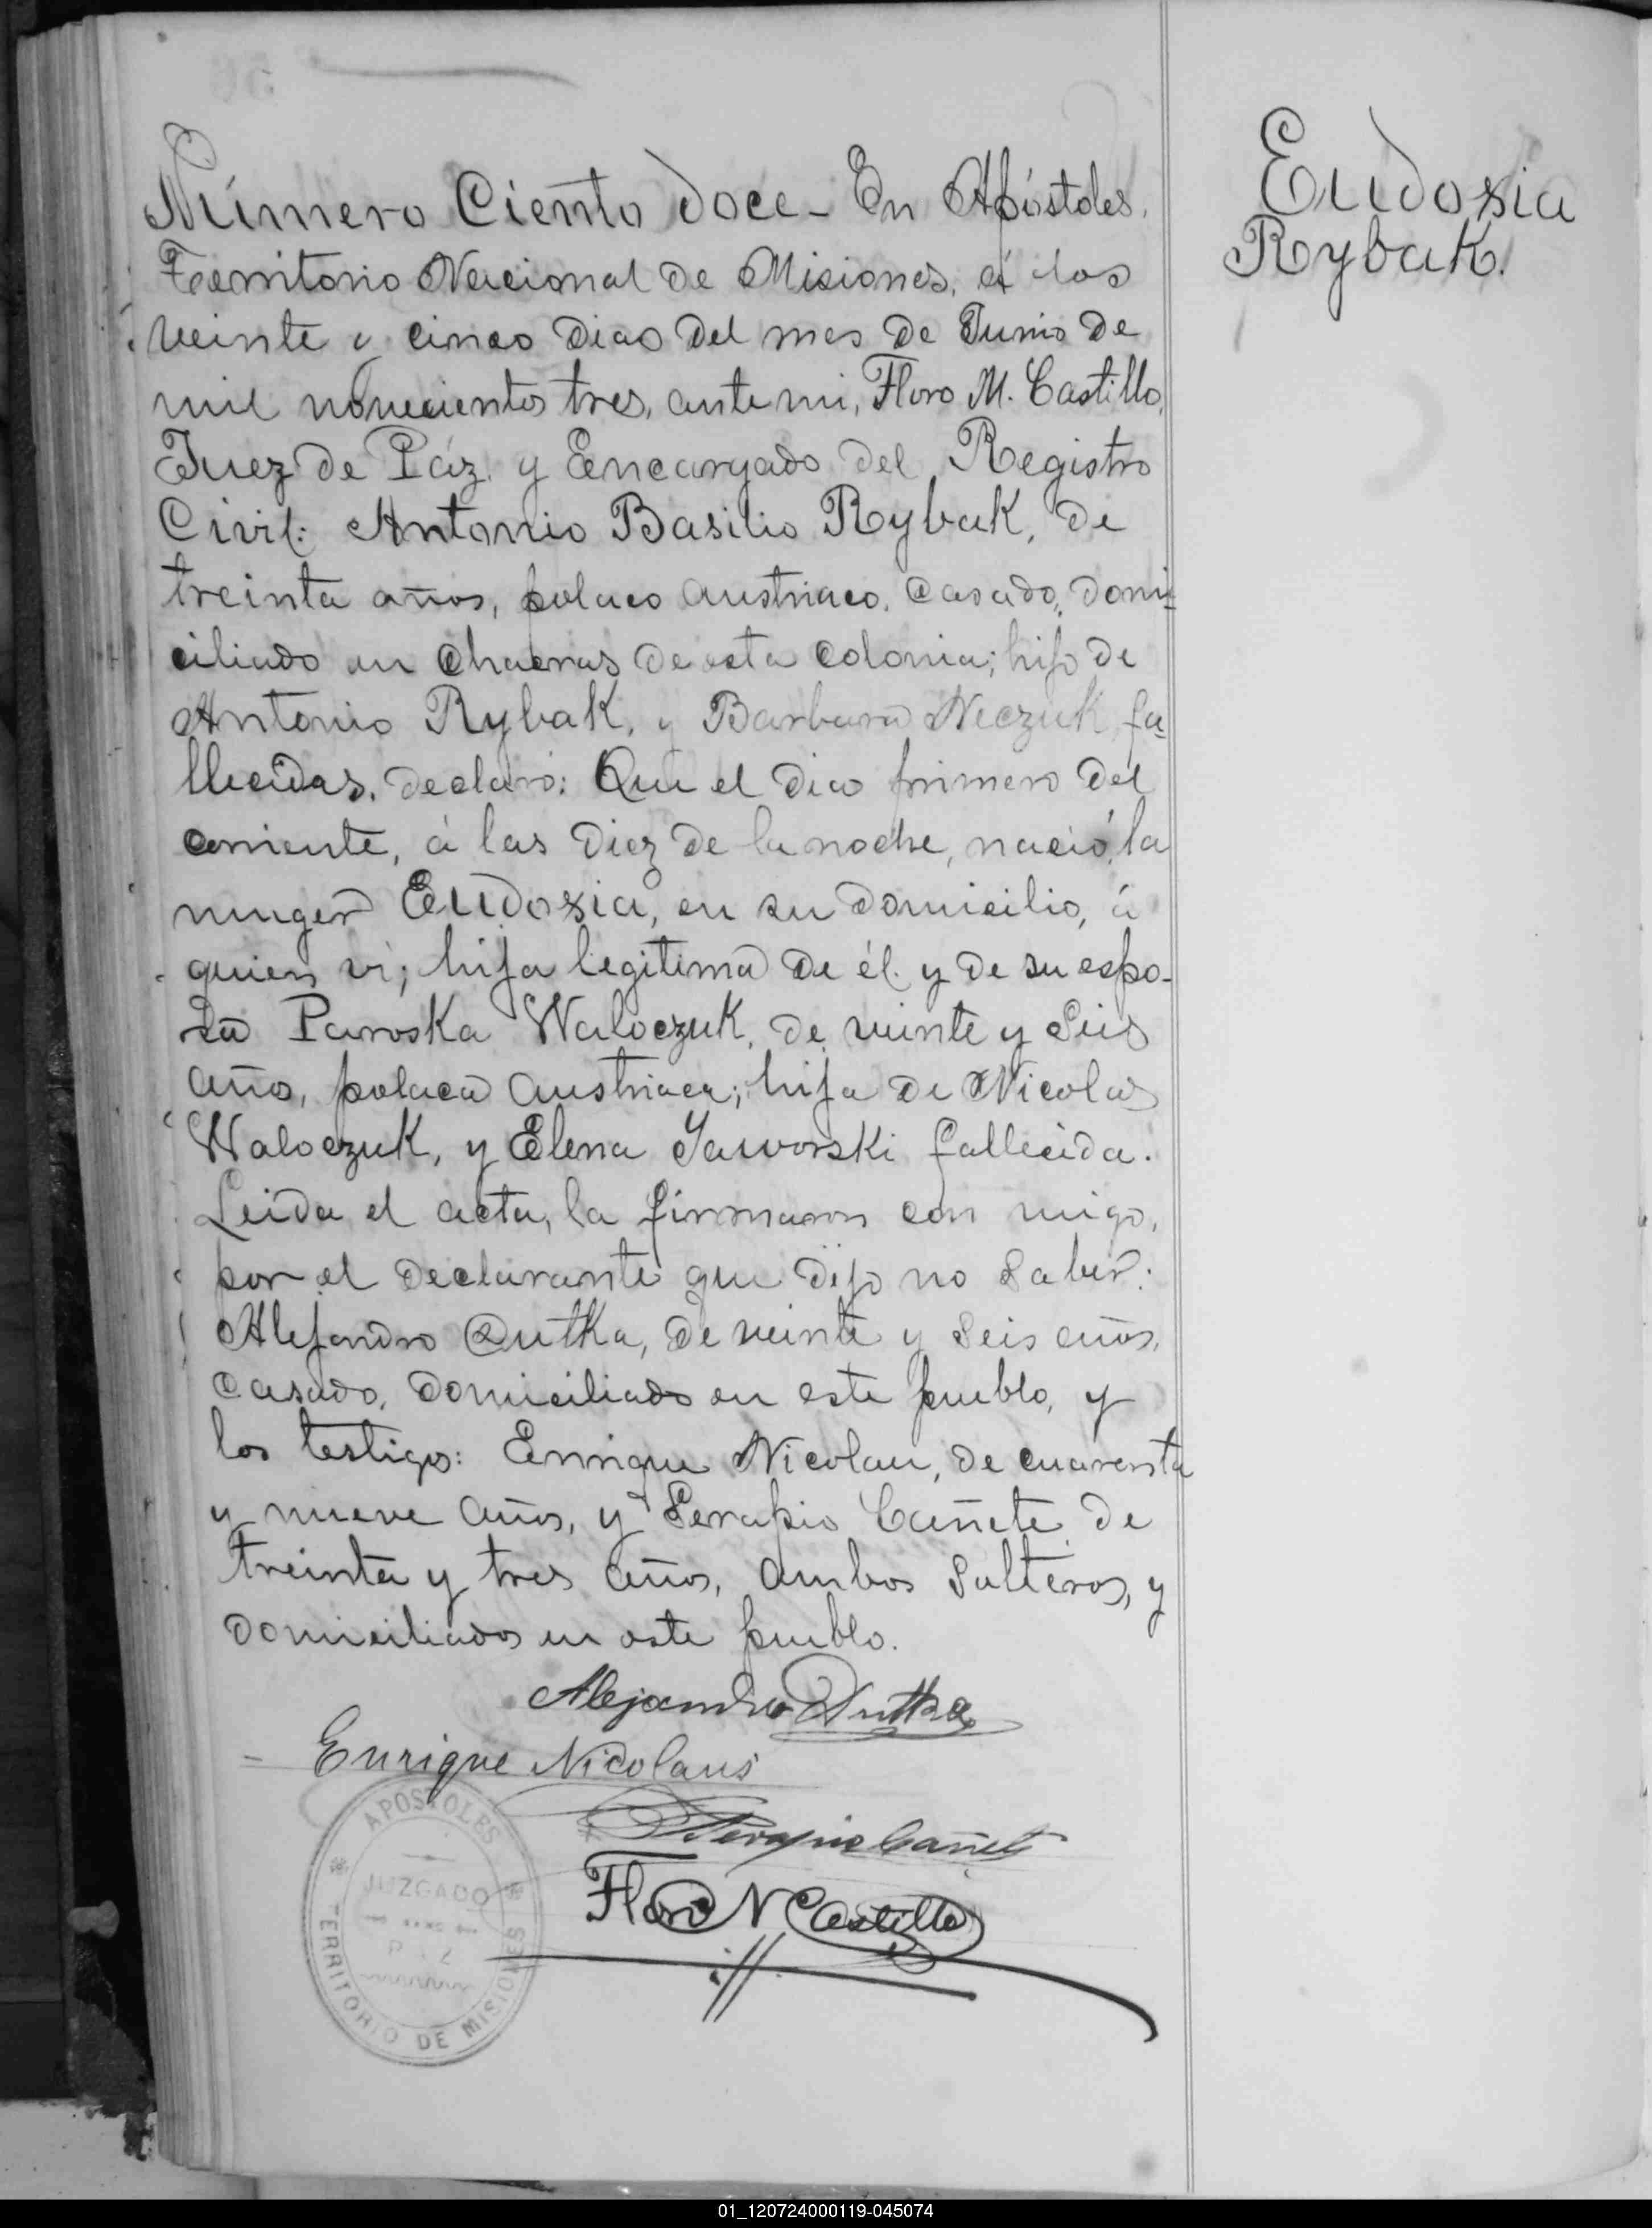 Número Ciento doce - En Apóstoles,
Territorio Nacional de Misiones, á los
veinte y cinco dias del mes de Junio de
mil novecientos tres, ante mi, Floro M. Castillo,
Juez de Páz y Encargado del Registro
Civil: Antonio Basilio Rybak, de
treinta años, polaco austriaco, casado, domi-
ciliado en chacras de esta colonia; hijo de
Antonio Rybak, y Barbara Neczuk, fa-
llecidas, declaró: Que el dia primero del
corriente, á las diez de la noche, nació la
muger Eudoxia, en su domicilio, á
quien ví; hija legitima de él y de su espo-
sa Paroska Waloczuk, de veinte y seis
año, polaca austriaca; hija de Nicolas
Waloczuk, y Elena Jaworski fallecida.
Leida el acta, la firmaron con migo,
por el declarante que dijo no saber:
Alejandro Dutka, de veinte y seis años,
casado, domiciliado en este pueblo, y
los testigos: Enrique Nicolau, de cuarenta
y nueve años, y Serapio Cañete de
treinta y tres años, ambos solteros, y
domiciliados en este pueblo.
Alejandro Dutka
Enrique Nicolaus
Serapio Cañete
Floro M Castillo
APOSTOLES
JUZGADO
DE
PAZ
TERRITORIO DE MISIONES
Eudoxia
Rybak.
01_120724000119-045074